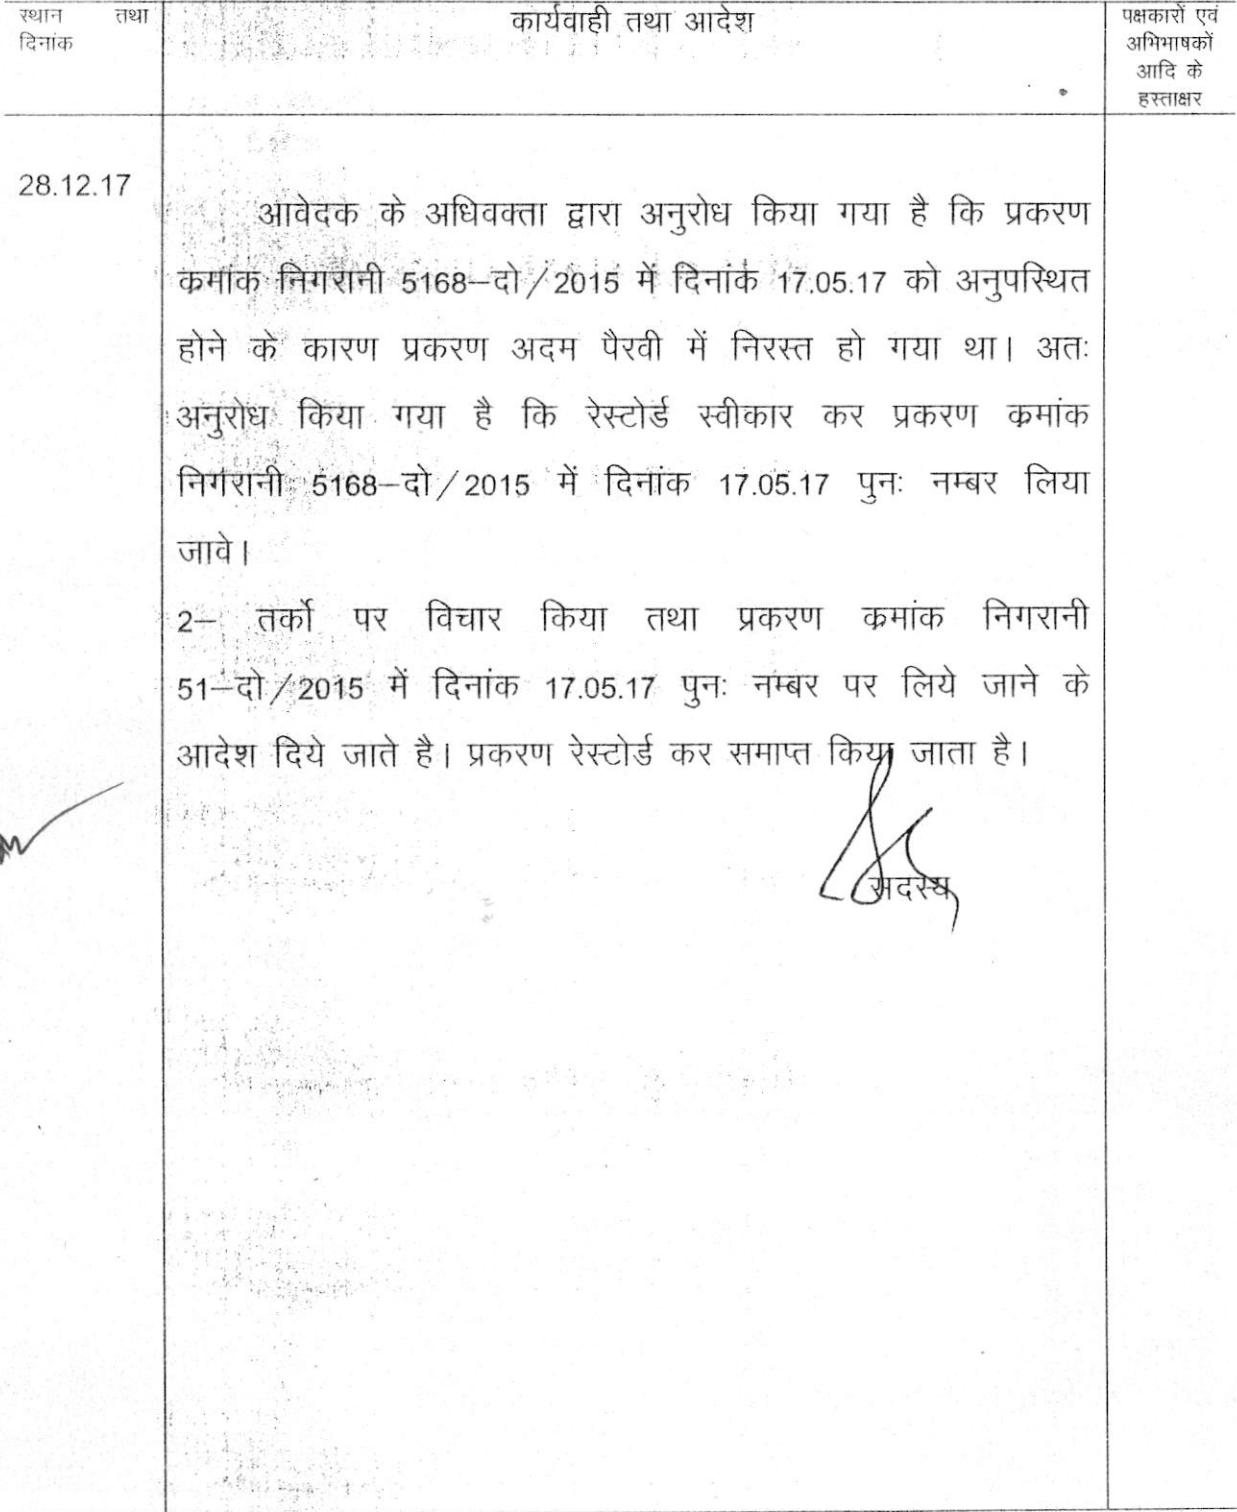 स्थान तथा
दिनांक
कार्यवाही तथा आदेश
पक्षकारों एवं
अभिभाषकों
आदि के
हस्ताक्षर
28.12.17
आवेदक के अधिवक्ता द्वारा अनुरोध किया गया है कि प्रकरण
कमांक निगरानी 5168–दो/2015 में दिनांक 17.05.17 को अनुपस्थित
होने के कारण प्रकरण अदम पैरवी में निरस्त हो गया था। अतः
अनुरोध किया गया है कि रेस्टोर्ड स्वीकार कर प्रकरण क्रमांक
निगरानी 5168–दो/2015 में दिनांक 17.05.17 पुनः नम्बर लिया
जावे।
2– तर्को पर विचार किया तथा प्रकरण क्रमांक निगरानी
51–दो/2015 में दिनांक 17.05.17 पुनः नम्बर पर लिये जाने के
आदेश दिये जाते है। प्रकरण रेस्टोर्ड कर समाप्त किया जाता है।
सदस्य